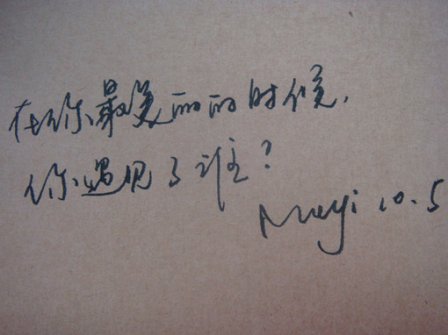 在你最美丽的时候，
你遇见了谁？
Meyi 10.5